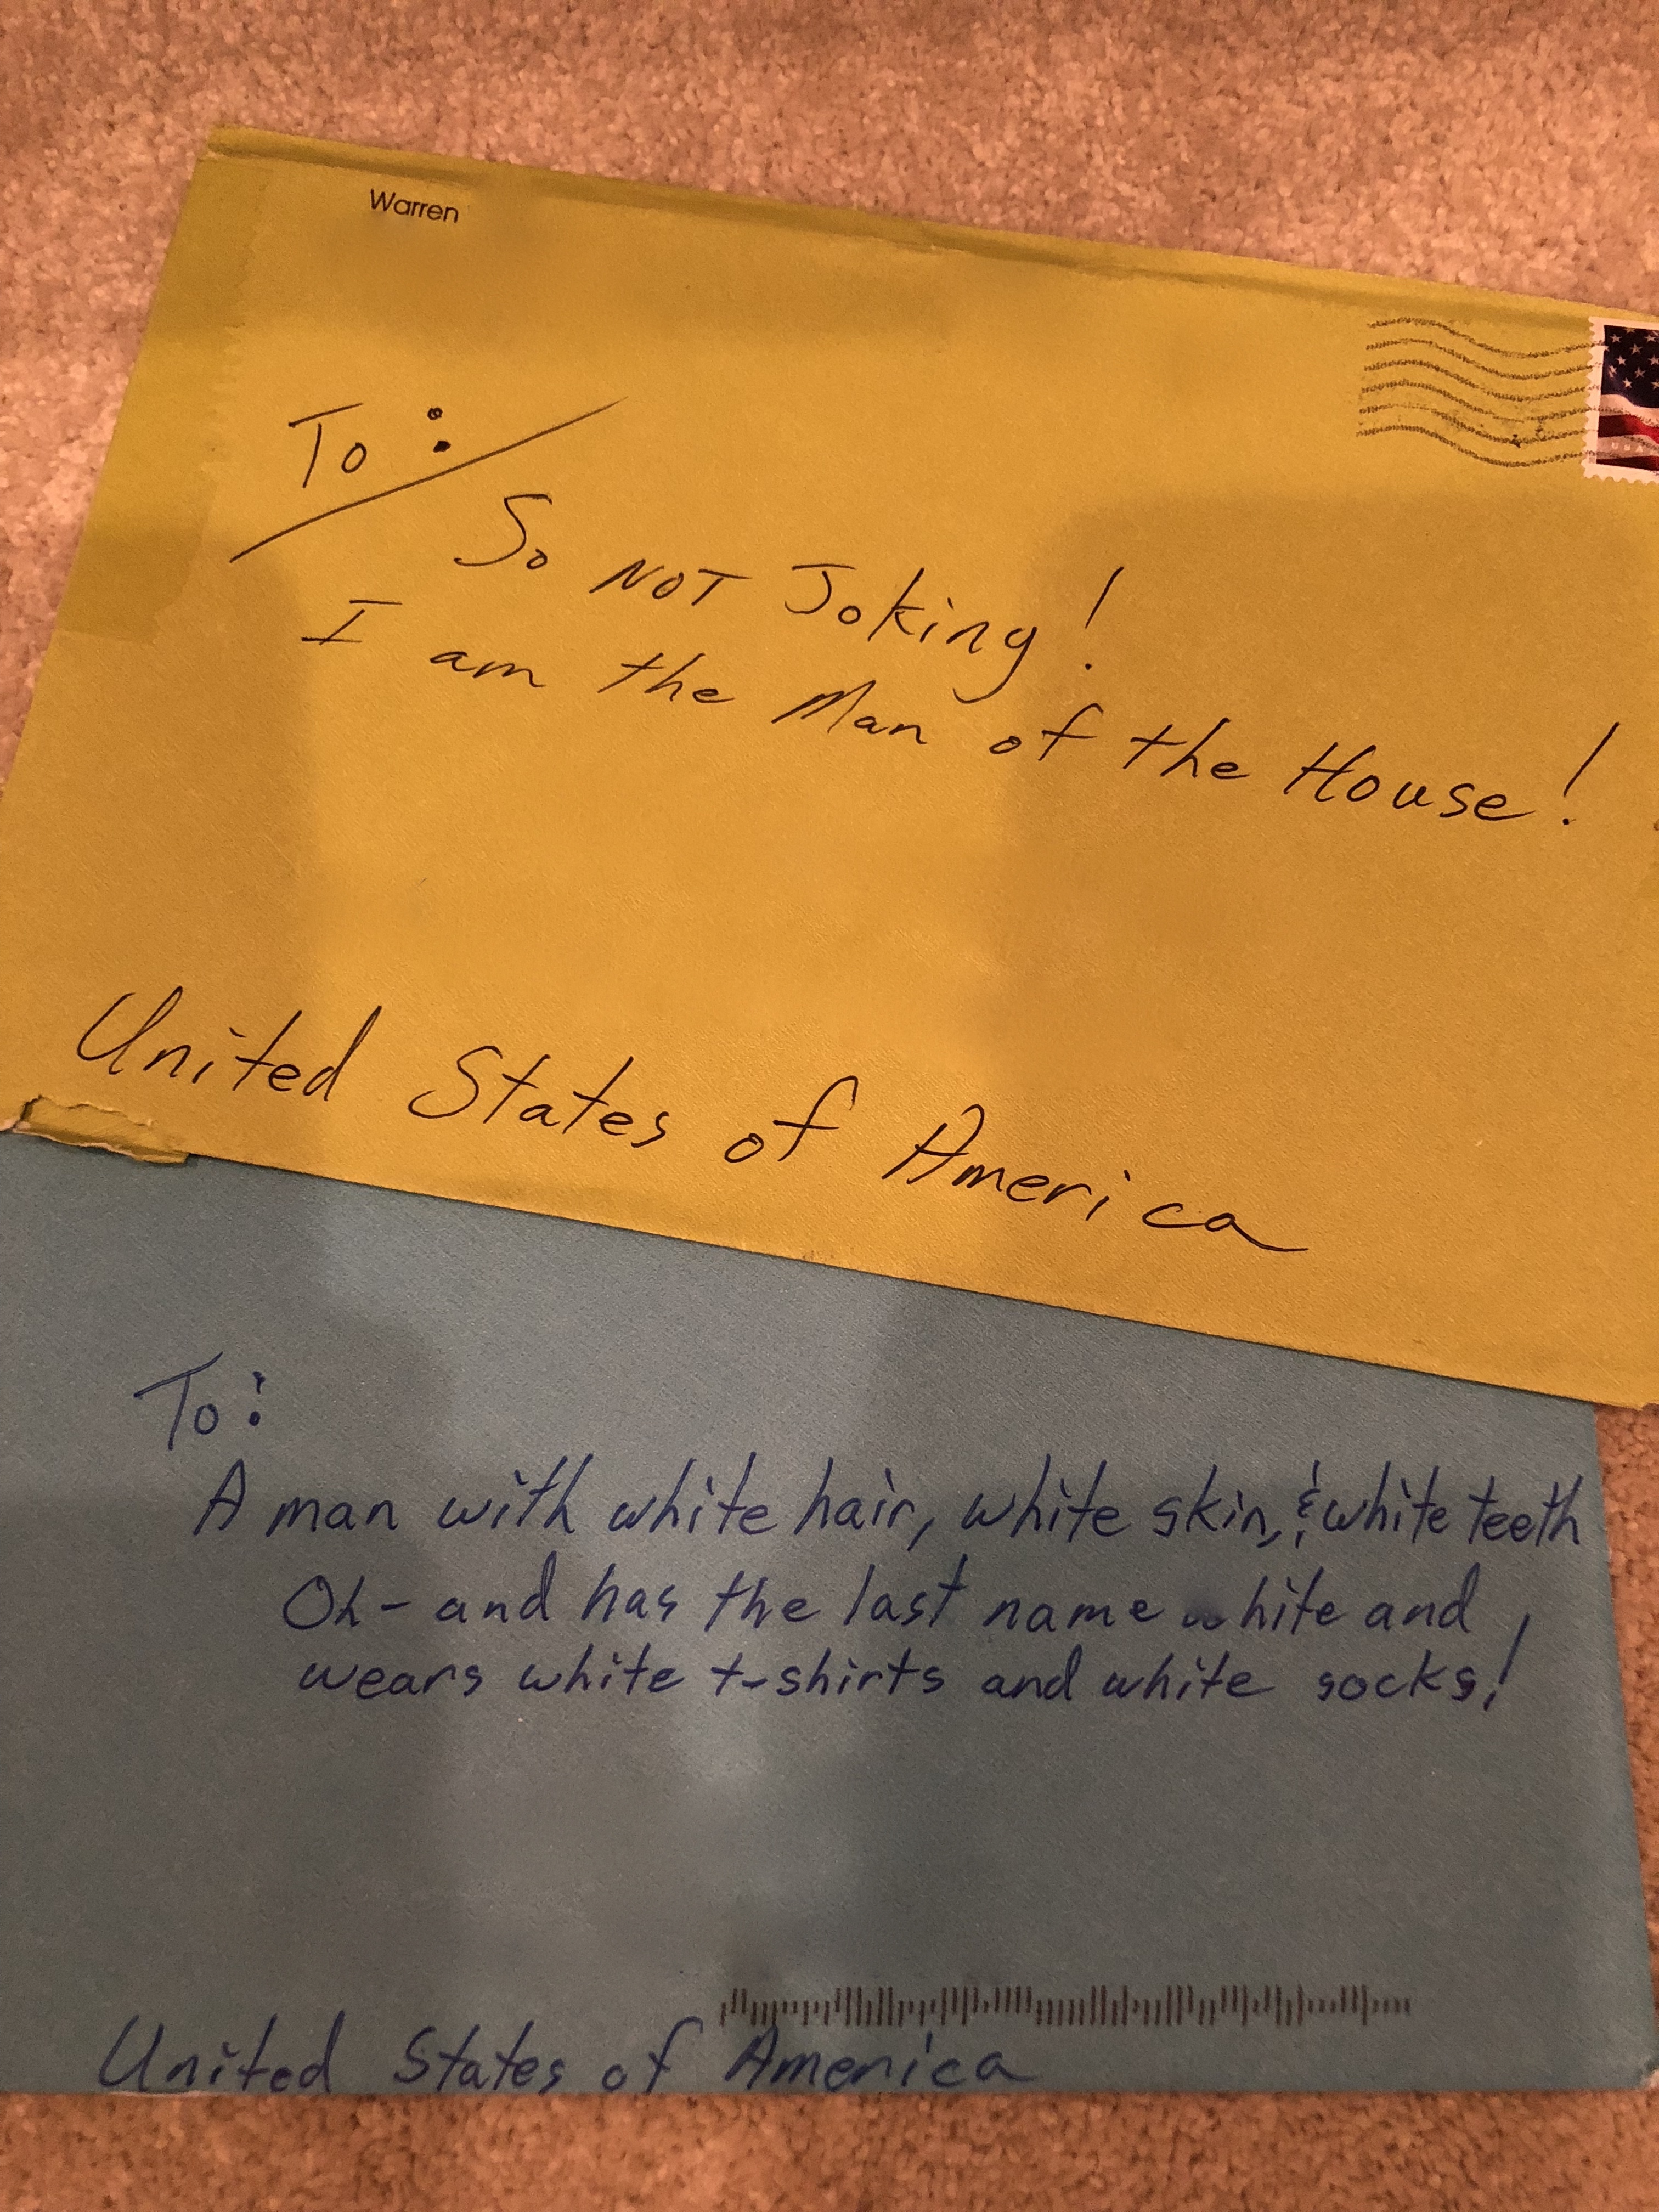 Warren
To:
So NOT Joking!
I am the Man of the House!
United States of America
To:
A man with white hair, white skin, & white teeth
Oh- and has the last name white and
wears white t-shirts and white socks!
United States of America